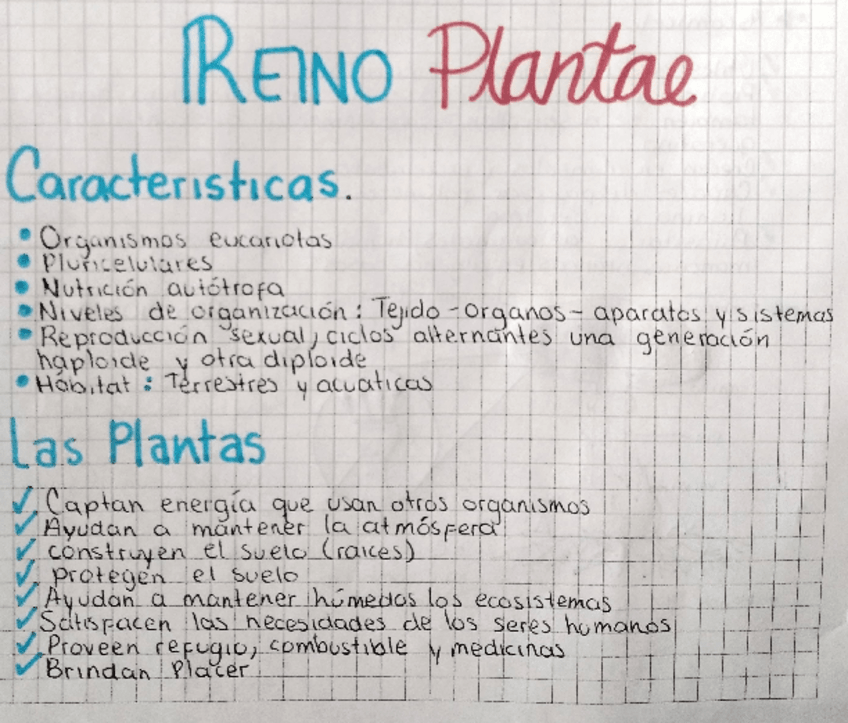 REINO Plantae
Caracteristicas.
• Organismos eucariotas
• Pluricelulares
• Nutrición autótrofa
• Niveles de organización: Tejido - organos - aparatos y sistemas
• Reproducción sexual, ciclos alternantes una generación
haploide y otra diploide
• Hábitat: Terrestres y acuaticas
Las Plantas
✓ Captan energía que usan otros organismos
✓ Ayudan a mantener la atmósfera
✓ construyen el suelo (raices)
✓ protegen el suelo
✓ Ayudan a mantener húmedos los ecosistemas
✓ Satisfacen las necesidades de los seres humanos
✓ Proveen refugio, combustible y medicinas
✓ Brindan Placer